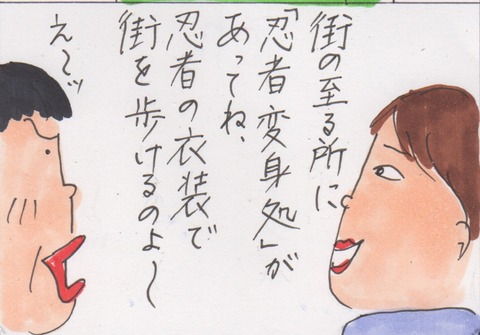 街の至る所に
「忍者変身処」が
あってね、
忍者の衣装で
街を歩けるのよ〜
え〜ッ